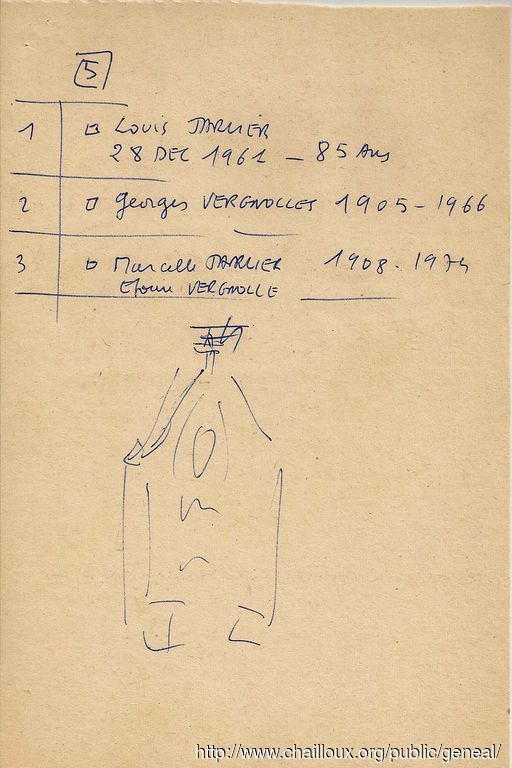 5
1 Louis JARLIER
28 DEC 1961 - 85 Ans
2 Georges VERGNOLLES 1905-1966
3 Marcelle JARLIER 1908-1974
VERGNOLLE
http://www.chailloux.org/public/geneal/